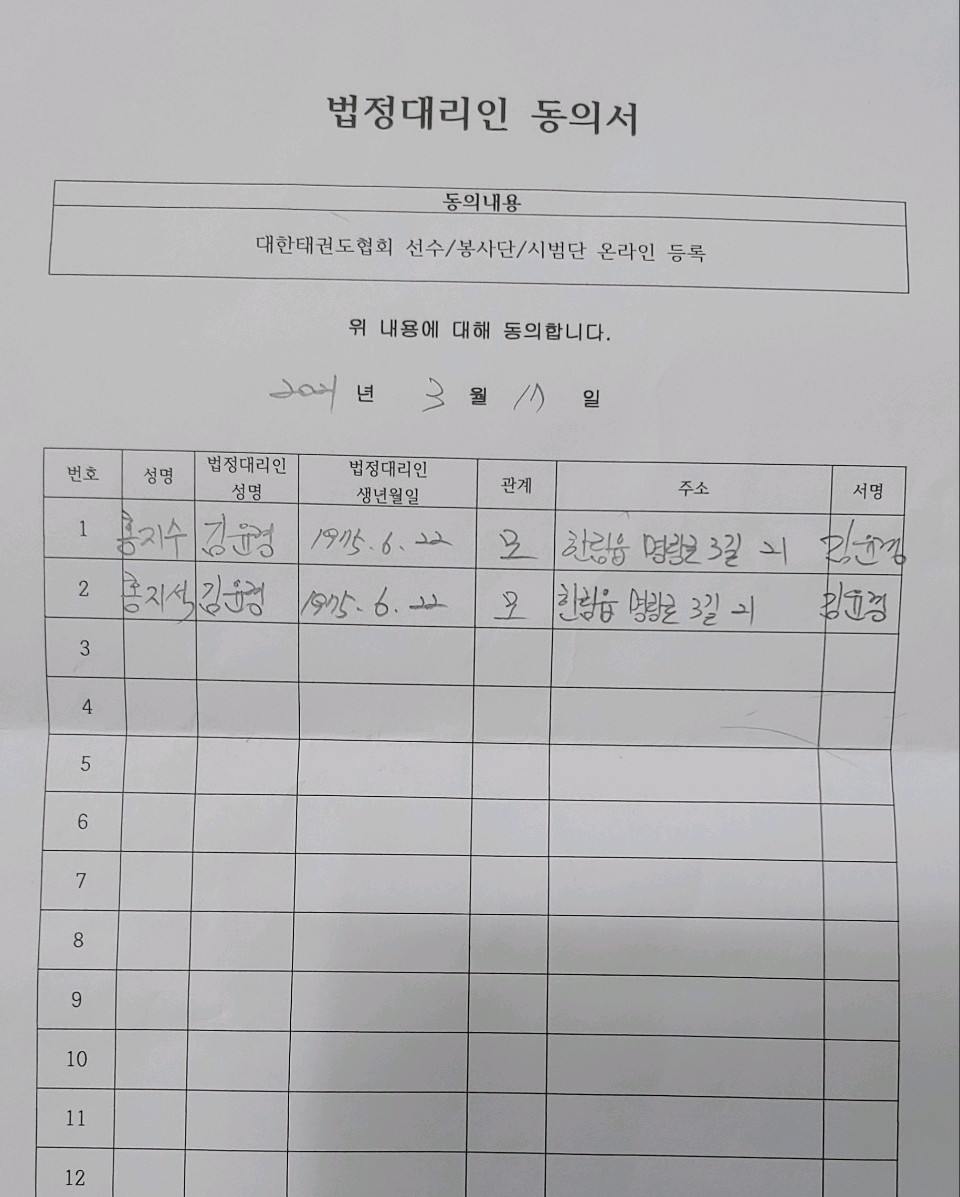 법정대리인 동의서
동의내용
대한태권도협회 선수/봉사단/시범단 온라인 등록
위 내용에 대해 동의합니다.
2021 년 3 월 17 일
번호 성명 법정대리인 성명 법정대리인 생년월일 관계 주소 서명
1 홍지수 김윤경 1975.6.22 모 한림읍 명랑로 3길 21 김윤경
2 홍지석 김윤경 1975.6.22 모 한림읍 명랑로 3길 21 김윤경
3
4
5
6
7
8
9
10
11
12